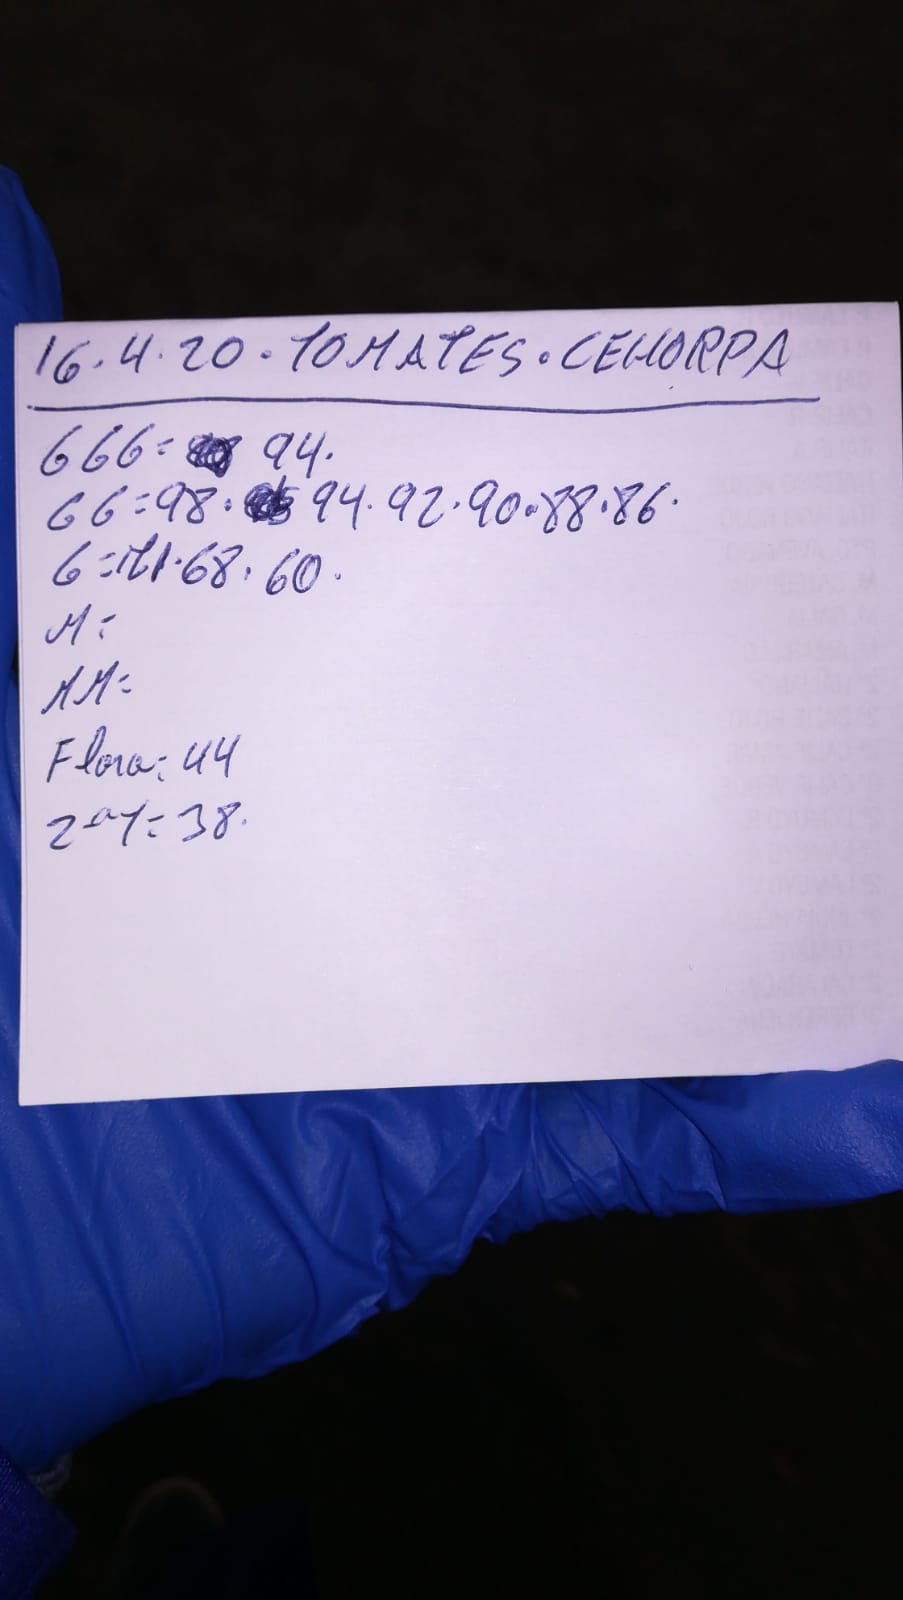 16.4.20. TOMATES. CEHORPA
GGG= 94.
GG=98. 94. 92. 90. 88. 86.
G= 68. 60.
M=
MM=
Flora= 44
2ª1= 38.